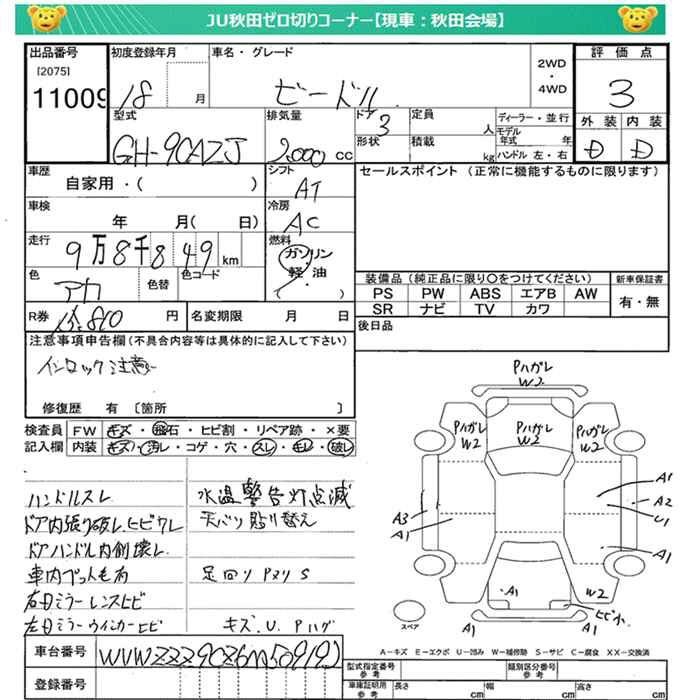 JU秋田ゼロ切りコーナー【現車：秋田会場】
出品番号
[2075]
11009
初度登録年月
18 月
車名・グレード
ビートル
2WD
・
4WD
評価点
3
外装 内装
D D
型式
GH-9CAZJ
排気量
2,000 cc
ドア
3
形状
定員
人
積載
kg
ディーラー・並行
モデル
年式 年
ハンドル 左・右
車歴
自家用・( )
シフト
AT
車検
年 月( 日)
冷房
AC
走行
9万8千849 km
燃料
ガソリン
軽・油
( )
色
アカ
色替
色コード
R券
円
名変期限 月 日
セールスポイント (正常に機能するものに限ります)
装備品(純正品に限り○をつけてください)
新車保証書
PS PW ABS エアB AW
SR ナビ TV カワ
有・無
後日品
注意事項申告欄(不具合内容等は具体的に記入して下さい)
インロック注意
修復歴 有 [箇所 ]
検査員
記入欄
FW キズ・飛石・ヒビ割・リペア跡・×要
内装 キズ・汚レ・コゲ・穴・スレ・キレ・破レ
ハンドルスレ
水温警告灯点滅
ドア内張り破レ、ヒビワレ
天バリ貼り替え
ドアハンドル内側壊レ
車内ペット毛有
足回り Pヌリ S
右ドミラーレンズヒビ
左ドミラーウインカーヒビ
キズ.U.Pハゲ
Pハガレ
W2
Pハガレ
W2
Pハガレ
W2
Pハガレ
W2
A1
A2
U1
A3
A1
A1
A1
W2
ヒビ小
スペア
A-キズ E-エクボ U-凹み W-補修跡 S-サビ C-腐食 XX-交換済
車台番号
登録番号
型式指定番号
参考
類別区分番号
参考
車庫証明用
参考
長さ cm
幅 cm
高さ cm